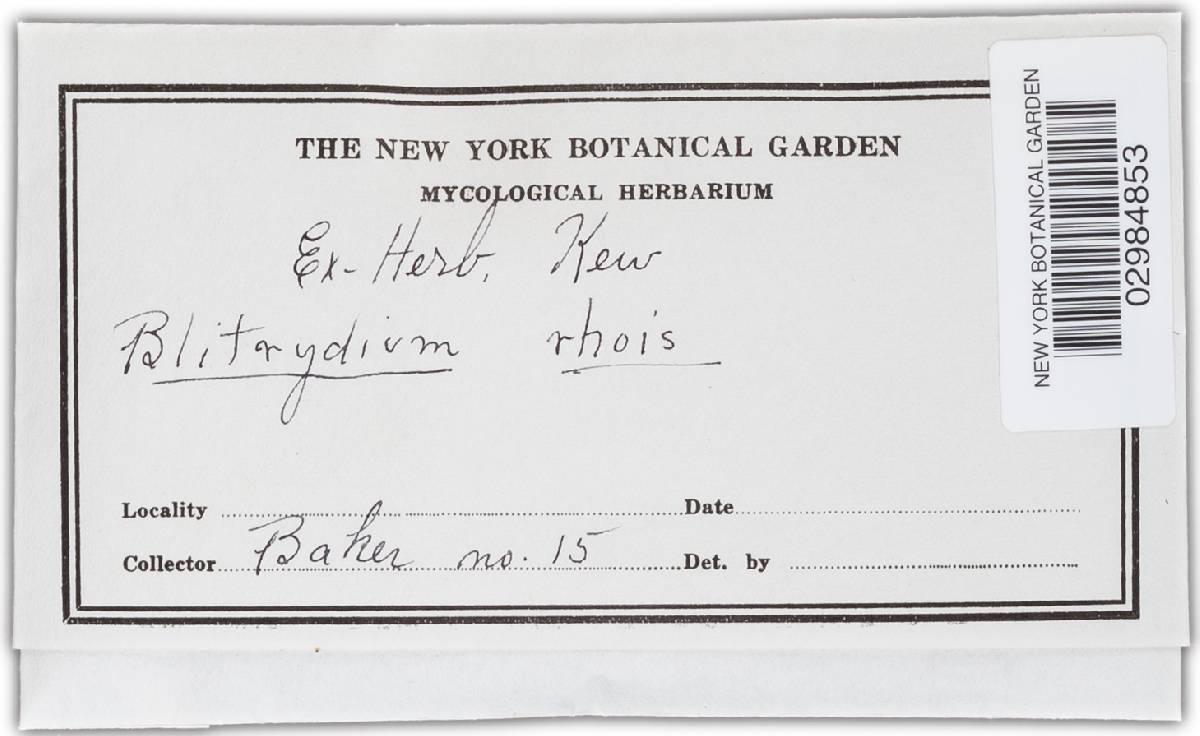 THE NEW YORK BOTANICAL GARDEN
MYCOLOGICAL HERBARIUM
Ex-Herb. Kew
Blitrydium rhois
Locality Date
Collector Baker no. 15 Det. by
NEW YORK BOTANICAL GARDEN
02984853